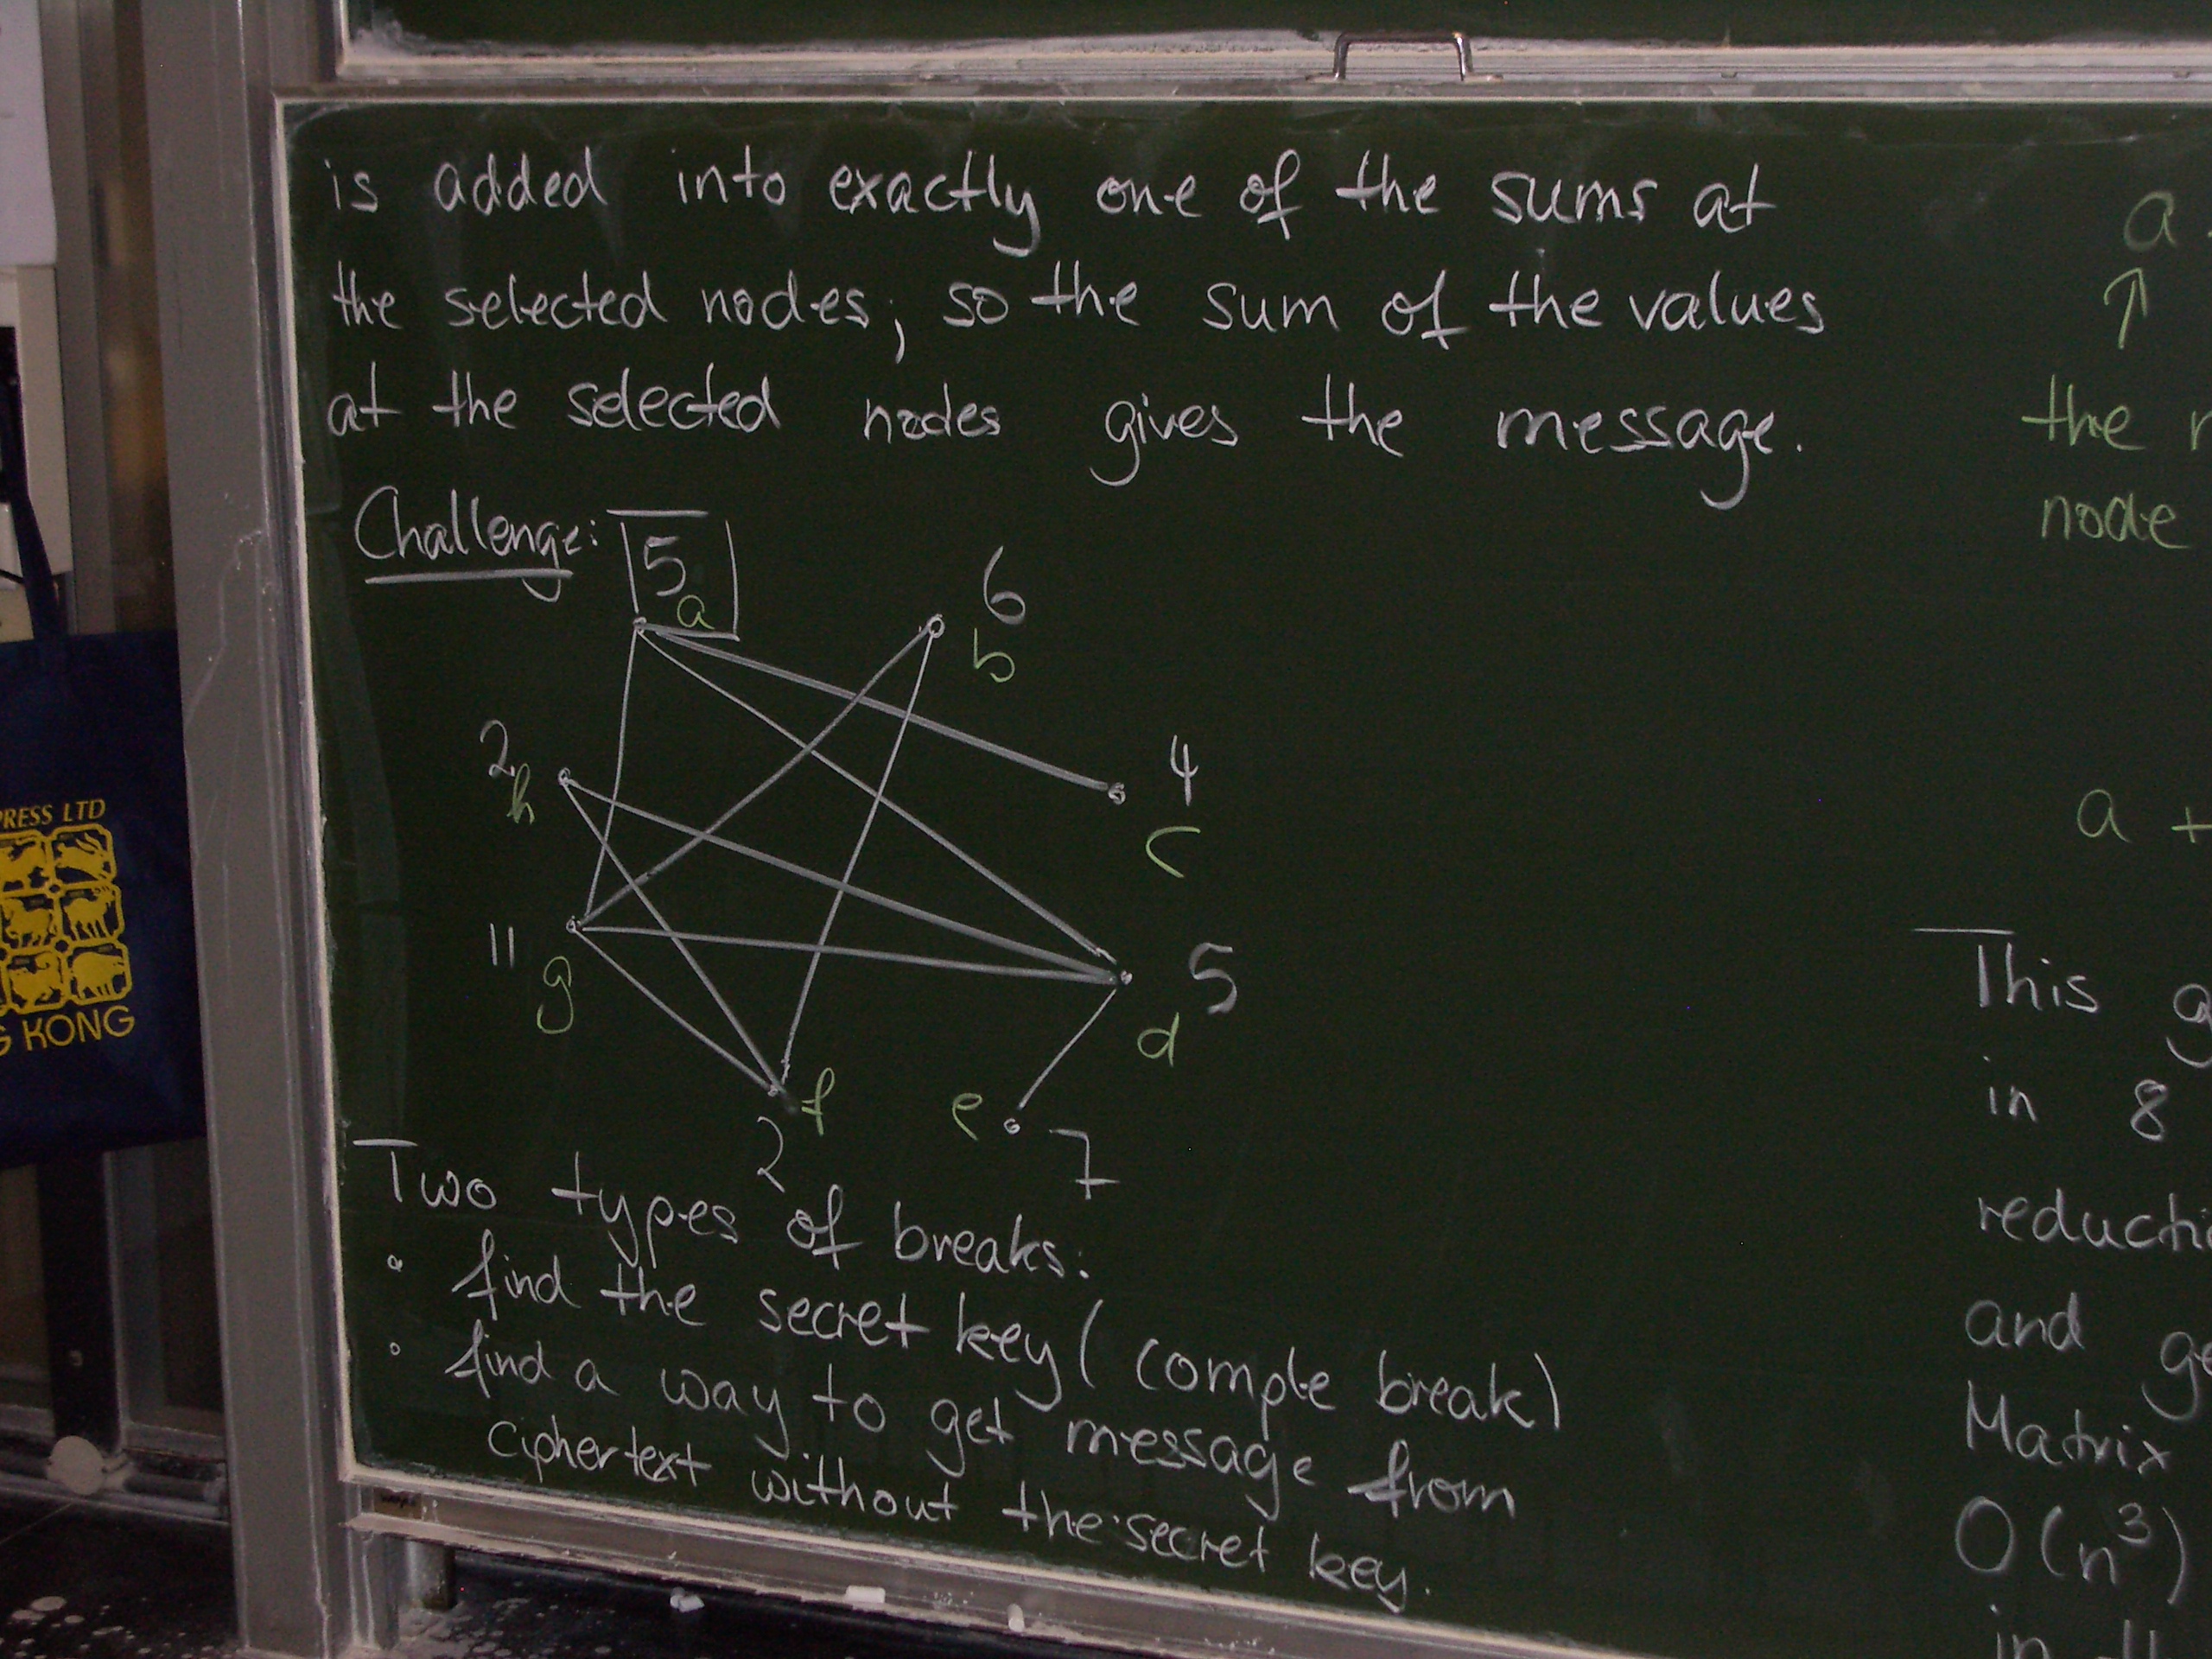 is added into exactly one of the sums at
the selected nodes; so the sum of the values
at the selected nodes gives the message.
Challenge:
5
a
6
b
2
h
4
c
11
g
5
d
f
2
e
7
Two types of breaks:
• find the secret key (comple break)
• find a way to get message from
ciphertext without the secret key.
a
↑
the
node
a +
This
in 8
reducti
and ge
Matrix
O(n³)
in
PRESS LTD
G KONG